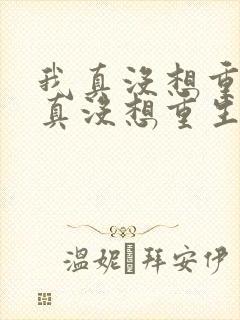 我真没想重
真没想重生
温妮·拜安伊